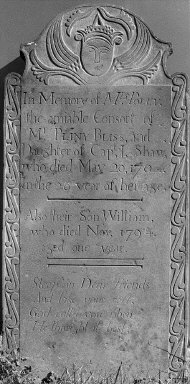 In Memory of Mrs
the amiable Consort of
Mr. PELNY BLISS, and
Daughter of Capt. I. Shaw,
who died May 20, 179
in the 26 year of her age.
Also their Son William,
who died Nov. 1794,
aged one year.
Sleep on Dear Friends
And take your rest,
God
He thought it best.